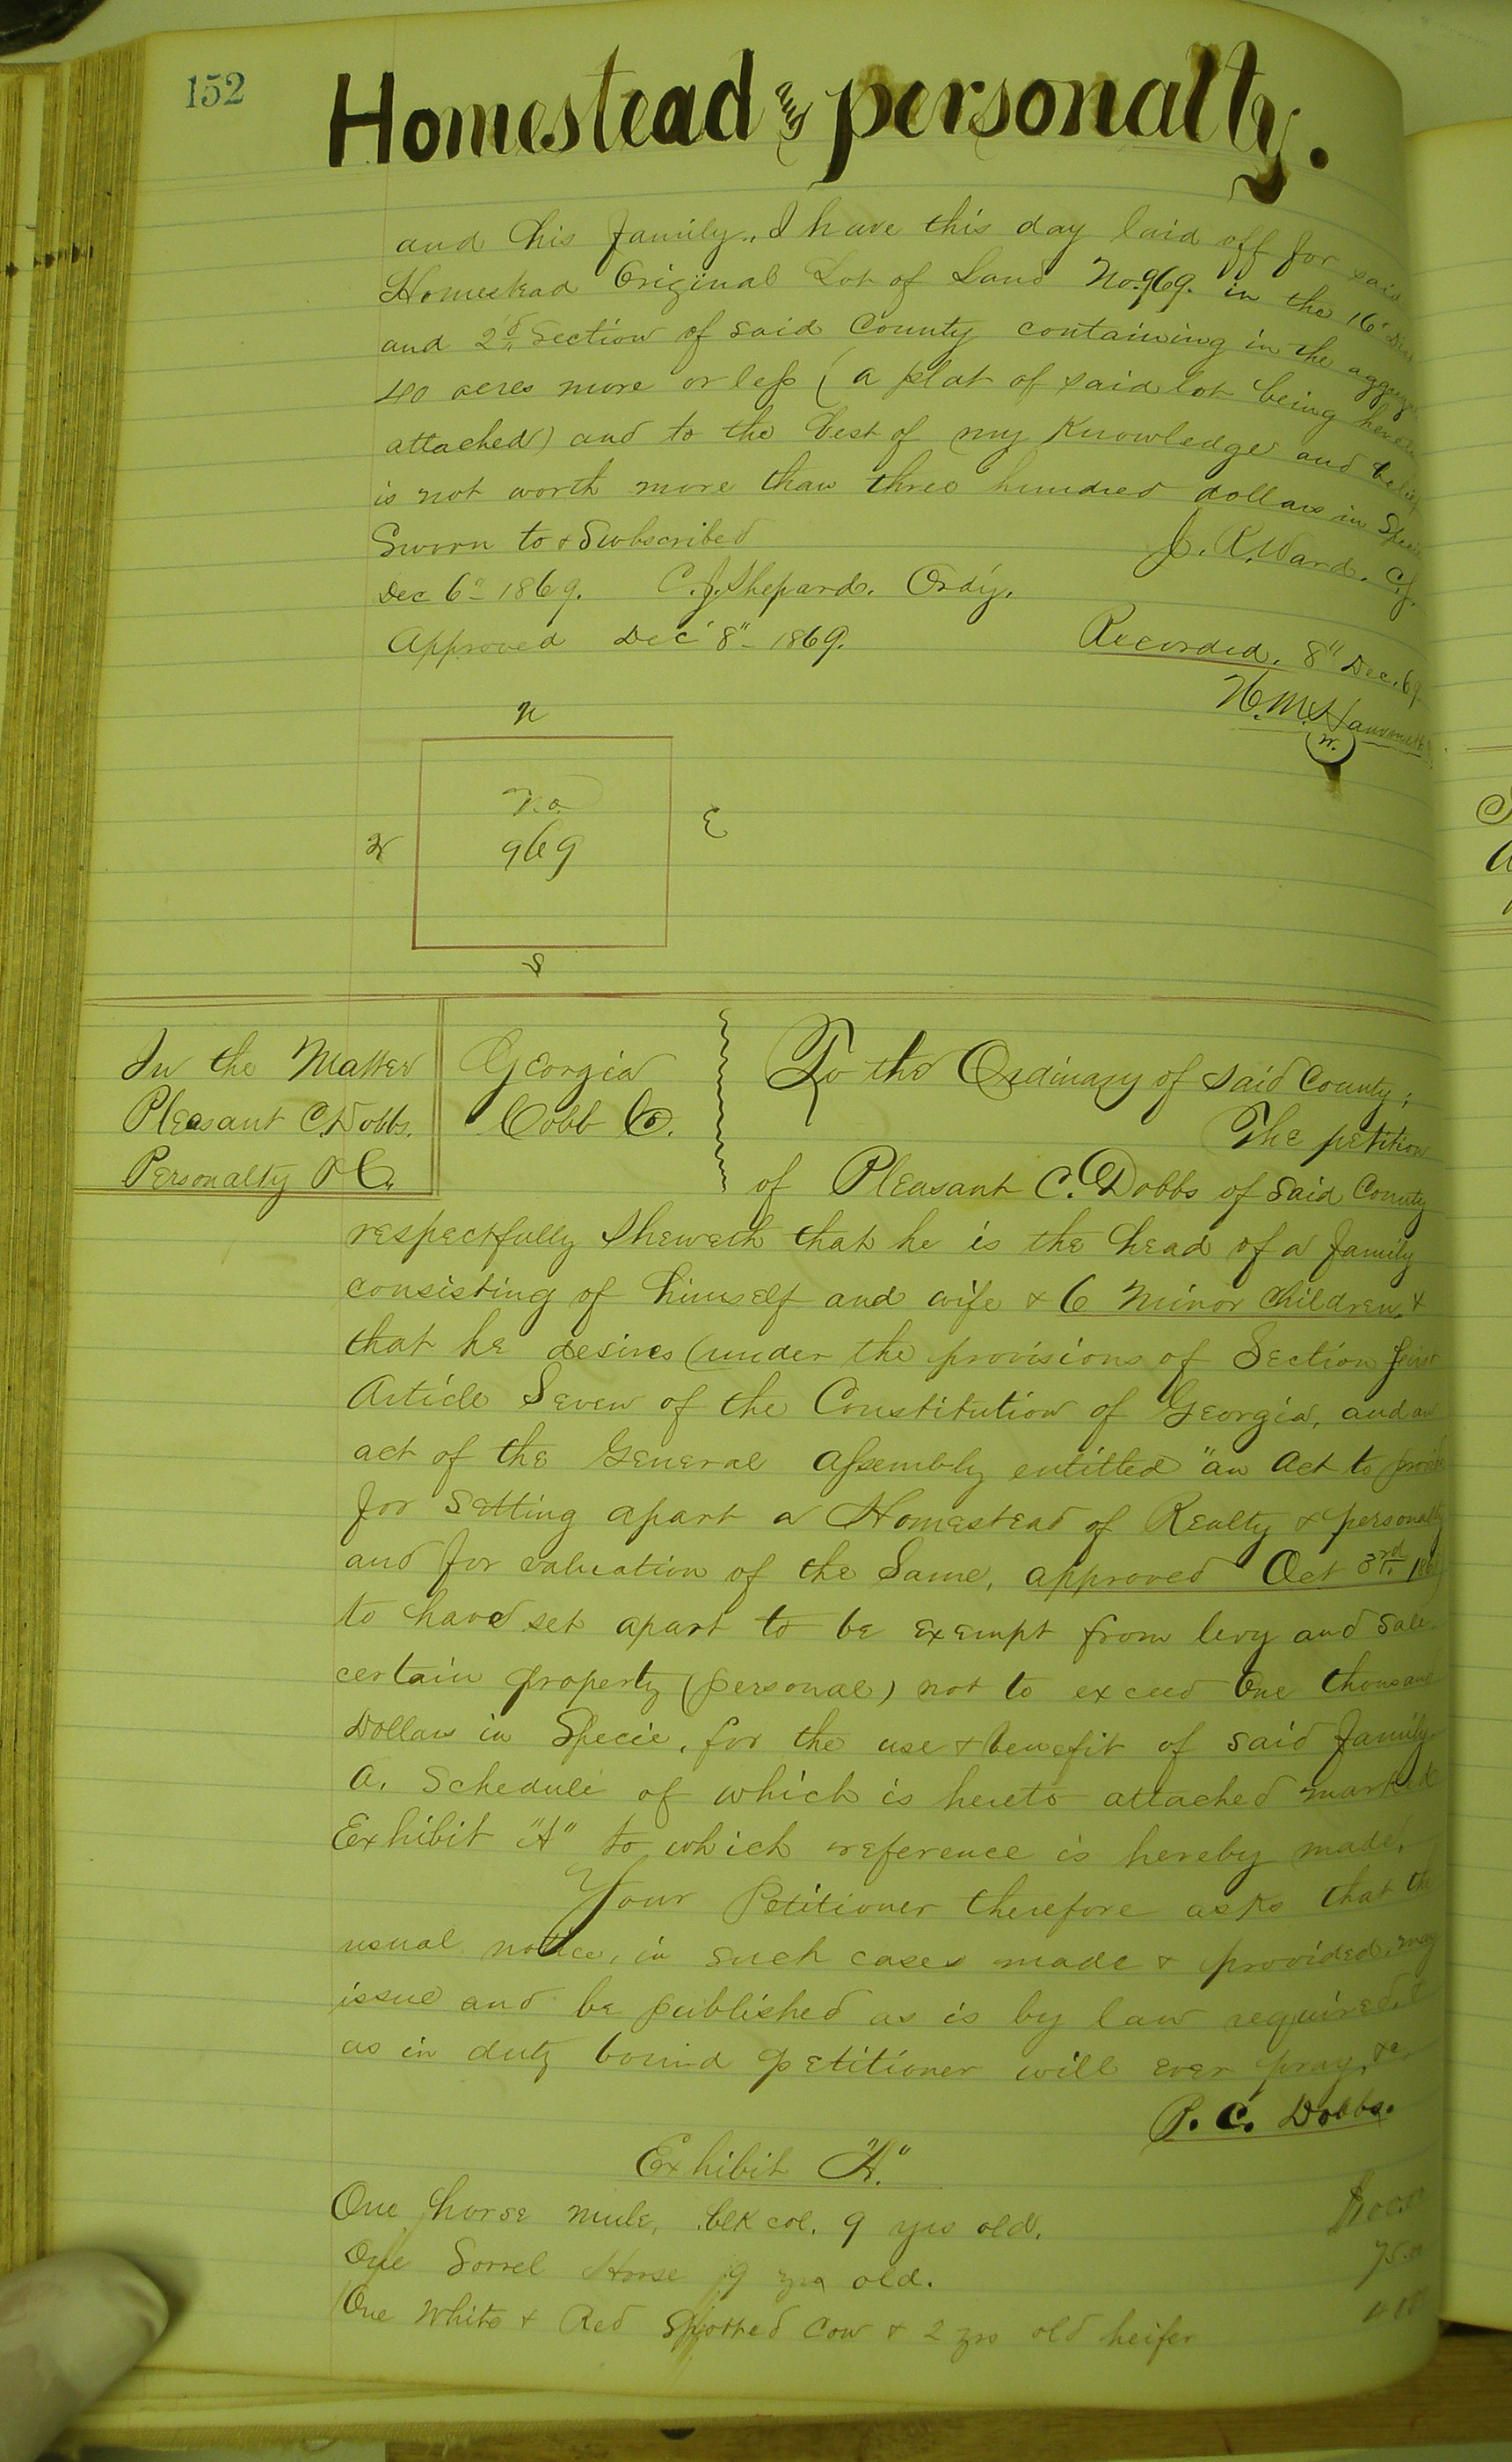 152
Homestead and personalty.
and his family, I have this day laid off for said
Homestead Original Lot of Land No. 969. in the 16"
and 2d Section of said County containing in the
40 acres more or less (a plat of said lot being
attached) and to the best of my Knowledge and belief
is not worth more than three hundred dollars in Specie
Sworn to & Subscribed
J. R. Ward. C.S.
Dec 6" 1869. C. J. Shepard. Ordy.
Approved Dec 8" 1869.
Recorded. 8" Dec. 69
N
No.
969
W
E
S
In the Matter
Pleasant C. Dobbs.
Personalty
Georgia
Cobb Co.
To the Ordinary of Said County;
The petition
of Pleasant C. Dobbs of Said County
respectfully Sheweth that he is the head of a family
consisting of himself and wife & 6 Minor Children, &
that he desires (under the provisions of Section first
Article Seven of the Constitution of Georgia, and an
act of the General Assembly entitled "an Act to provide
for Setting apart a Homestead of Realty & personalty
and for valuation of the Same, approved Oct 3rd
to have set apart to be exempt from levy and Sale
certain property (personal) not to exceed One thousand
Dollars in Specie, for the use & benefit of said family.
A. Schedule of which is hereto attached marked
Exhibit "A" to which reference is hereby made.
Your Petitioner therefore asks that the
usual notice, in such cases made & provided, may
issue and be published as is by law required, &
as in duty bound petitioner will ever pray, &c
P. C. Dobbs.
Exhibit "A."
One horse mule, blk col. 9 yrs old.
One Sorrel Horse 9 yrs old. 75.00
One White & Red Spotted Cow & 2 yrs old heifer